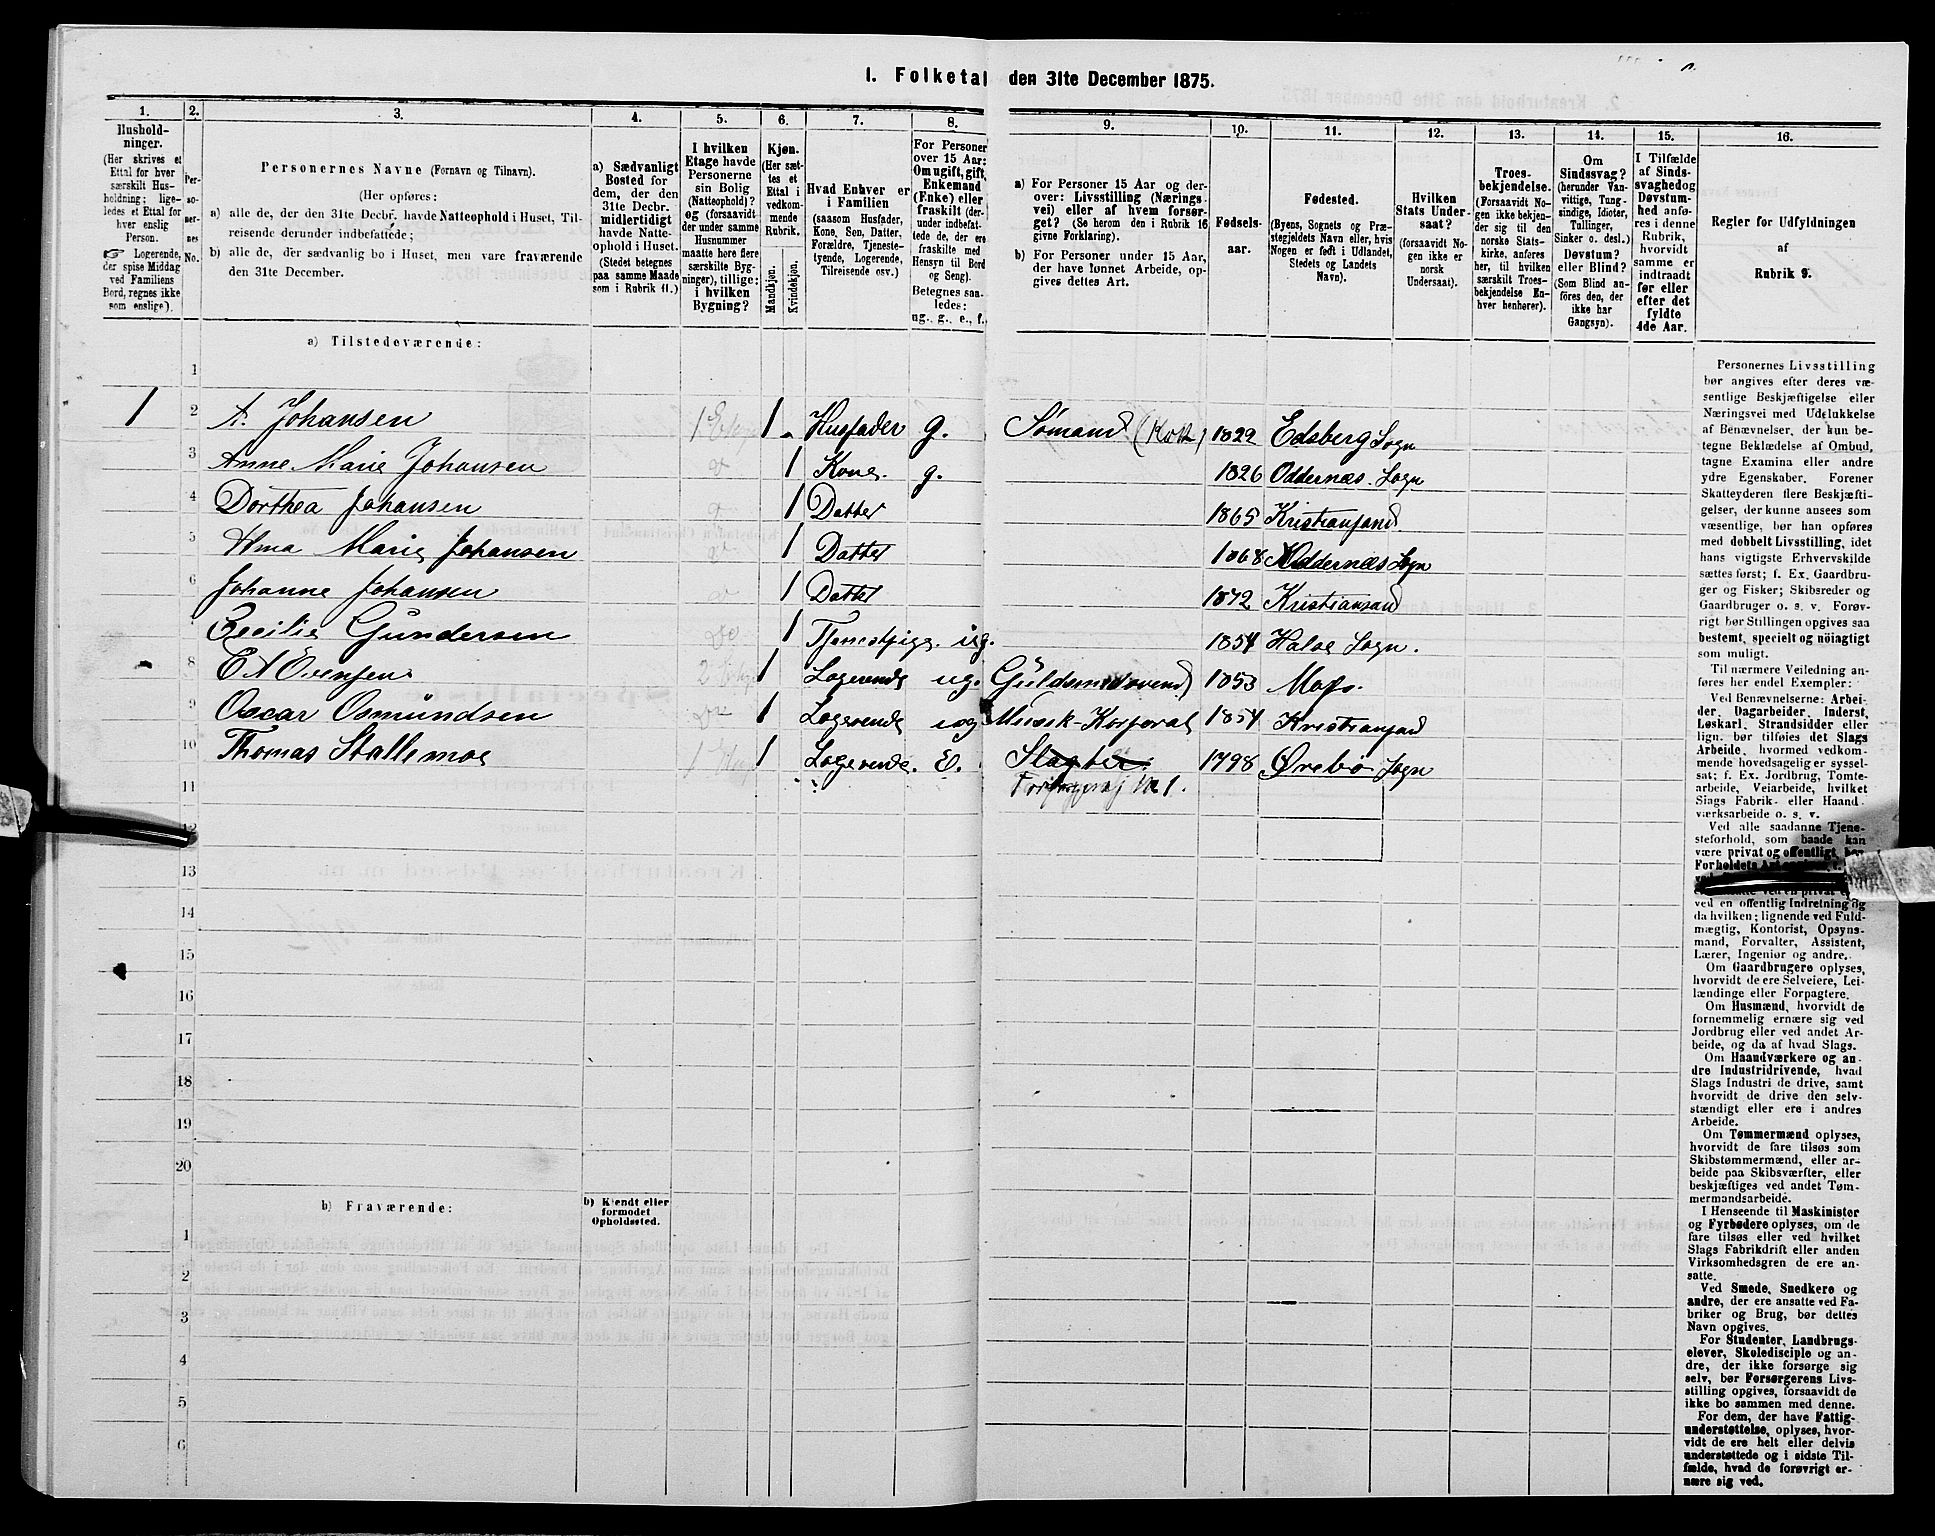 1. Folketal den 31te December 1875.
1. 2. 3. 4. 5. 6. 7. 8. 9. 10. 11. 12. 13. 14. 15. 16.
Hushold-
ninger.
(Her skrives et
Ettal for hver
særskilt Hus-
holdning; lige-
ledes et Ettal for
hver enslig
Person.
☞ Logerende,
der spise Middag
ved Familiens
Bord, regnes ikke
som enslige).
Per-
so-
ner-
nes
No.
Personernes Navne (Fornavn og Tilnavn).
(Her opføres:
a) alle de, der den 31te Decbr. havde Natteophold i Huset, Til-
reisende derunder indbefattede;
b) alle de, der sædvanlig bo i Huset, men vare fraværende
den 31te December.
a) Sædvanligt
Bosted for
dem, der den
31te Decbr.
midlertidigt
havde Natte-
ophold i Huset.
(Stedet betegnes
paa samme Maade
som i Rubrik 11.)
I hvilken
Etage havde
Personerne
sin Bolig
(Natteophold)?
og (forsaavidt
der under samme
Husnummer
maatte høre flere
særskilte Byg-
ninger), tillige:
i hvilken
Bygning?
Kjøn.
(Her sæt-
tes et
Ettal i
vedkom-
mende
Rubrik.
Mandkjøn.
Kvindekjøn.
Hvad Enhver er
i Familien
(saasom Husfader,
Kone, Søn, Datter,
Forældre, Tjeneste-
tyende, Logerende,
Tilreisende osv.)
For Personer
over 15 Aar:
Om ugift, gift,
Enkemand
(Enke) eller
fraskilt (der-
under indbefat-
tede de, der ere
fraskilte med
Hensyn til Bord
og Seng).
Betegnes saa-
ledes:
ug., g., e., f.
a) For Personer 15 Aar og der-
over: Livsstilling (Nærings-
vei) eller af hvem forsør-
get? (Se herom den i Rubrik 16
givne Forklaring).
b) For Personer under 15 Aar,
der have lønnet Arbeide, op-
gives dettes Art.
Fødsels-
aar.
Fødested.
(Byens, Sognets og Præ-
stegjeldets Navn eller, hvis
Nogen er født i Udlandet,
Stedets og Landets
Navn).
Hvilken
Stats Under-
saat?
(forsaavidt No-
gen ikke er
norsk
Undersaat).
Troes-
bekjendelse.
(Forsaavidt No-
gen ikke bekjen-
der sig til den
norske Stats-
kirke, anføres
her, til hvilken
særskilt Troes-
bekjendelse En-
hver henhører).
Om
Sindssvag?
(herunder Van-
vittige, Tung-
sindige, Idioter,
Tullinger,
Sinker o. desl.)
Døvstum?
eller Blind?
(Som Blind an-
føres den, der
ikke har
Gangsyn).
I Tilfælde
af Sinds-
svaghed og
Døvstum-
hed anfø-
res i denne
Rubrik,
hvorvidt
samme er
indtraadt
før eller
efter det
fyldte
4de Aar.
Regler for Udfyldningen
af
Rubrik 9.
a) Tilstedeværende:
1
1 2 A. Johansen 1 1 Husfader g. Sømand 1822 Edsberg Sogn
3 Anne Marie Johansen 1 Kone g. 1826 Oddernæs Sogn
4 Dorthea Johansen 1 Datter 1865 Kristiansand
5 Marie Johansen 1 Datter 1868 Oddernæs Sogn
6 Johanne Johansen 1 Datter 1872 Kristiansand
Cecilie Gundersen 1 Tjenestpige ug. 1854 Halse Sogn.
8 1 Logerende ug. 1853 Moss.
9 Oscar Osmundsen 1 Logerende ug Musik-Korporal 1854 Kristiansand
10 Thomas Stallemoe 1 1 Logerende. E. Slagter 1798 Ørebø Sogn
11
12
13
14
15
16
18
19
20
b) Fraværende:
b) Kjendt eller
formodet
Opholdssted.
1
2
3
4
5
6
Personernes Livsstilling
bør angives efter deres væ-
sentlige Beskjæftigelse eller
Næringsvei med Udelukkelse
af Benævnelser, der kun be-
tegne Beklædelse af Ombud,
tagne Examina eller andre
ydre Egenskaber. Forener
Skatteyderen flere Beskjæfti-
gelser, der kunne ansees som
væsentlige, bør han opføres
med dobbelt Livsstilling, idet
hans vigtigste Erhvervskilde
sættes først; f. Ex. Gaardbru-
ger og Fisker; Skibsreder og
Gaardbruger o. s. v. Forøv-
rigt bør Stillingen opgives saa
bestemt, specielt og nöiagtigt
som muligt.
Til nærmere Veiledning an-
føres her endel Exempler:
Ved Benævnelserne: Arbei-
der, Dagarbeider, Inderst,
Løskarl, Strandsidder eller
lign. bør tilføies det Slags
Arbeide, hvormed vedkom-
mende hovedsagelig er syssel-
sat; f. Ex. Jordbrug, Tomte-
arbeide, Veiarbeide, hvilket
Slags Fabrik- eller Haand-
værksarbeide o. s. v.
Ved alle saadanne Tjene-
steforhold, som baade kan
være privat og offentligt, bør
Forholdets
ved en offentlig Indretning og
da hvilken; lignende ved Fuld-
mægtig, Kontorist, Opsyns-
mand, Forvalter, Assistent,
Lærer, Ingeniør og andre.
Om Gaardbrugere oplyses,
hvorvidt de ere Selveiere, Lei-
lændinge eller Forpagtere.
Om Husmænd, hvorvidt de
fornemmelig ernære sig ved
Jordbrug eller ved andet Ar-
beide, og da af hvad Slags.
Om Haandværkere og an-
dre Industridrivende, hvad
Slags Industri de drive, samt
hvorvidt de drive den selv-
stændigt eller ere i andres
Arbeide.
Om Tømmermænd oplyses,
hvorvidt de fare tilsøs som
Skibstømmermænd, eller ar-
beide paa Skibsværfter, eller
beskjæftiges ved andet Tøm-
mermandsarbeide.
I Henseende til Maskinister
og Fyrbødere oplyses, om de
fare tilsøs eller ved hvilket
Slags Fabrikdrift eller anden
Virksomhedsgren de ere an-
satte.
Ved Smede, Snedkere og
andre, der ere ansatte ved Fa-
briker og Brug, bør dettes
Navn opgives.
For Studenter, Landbrugs-
elever, Skoledisciple og an-
dre, der ikke forsørge sig
selv, bør Forsørgerens Livs-
stilling opgives, forsaavidt de
ikke bo sammen med denne.
For dem, der have Fattig-
understøttelse, oplyses, hvor-
vidt de ere helt eller delvis
understøttede og i sidste Til-
fælde, hvad de forøvrigt er-
nære sig ved.